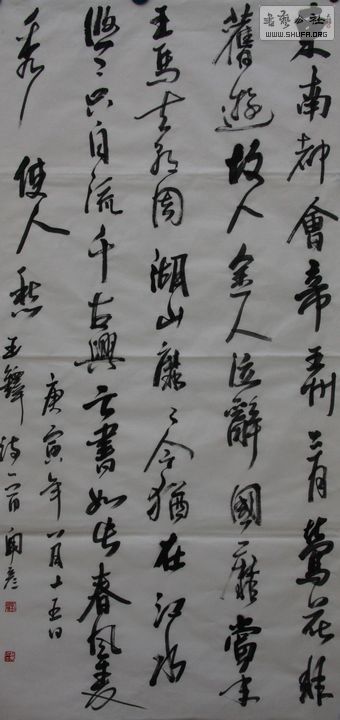 東南都會帝王州三月鶯花非
舊遊故人金人泣辭國靡當年
玉馬去朝周湖山靡々今猶在江水
悠々只自流千古興亡書如此春風麥
秀使人愁
庚寅年八月十五日
王鐸詩一首
書藝公社
WWW.SHUFA.ORG